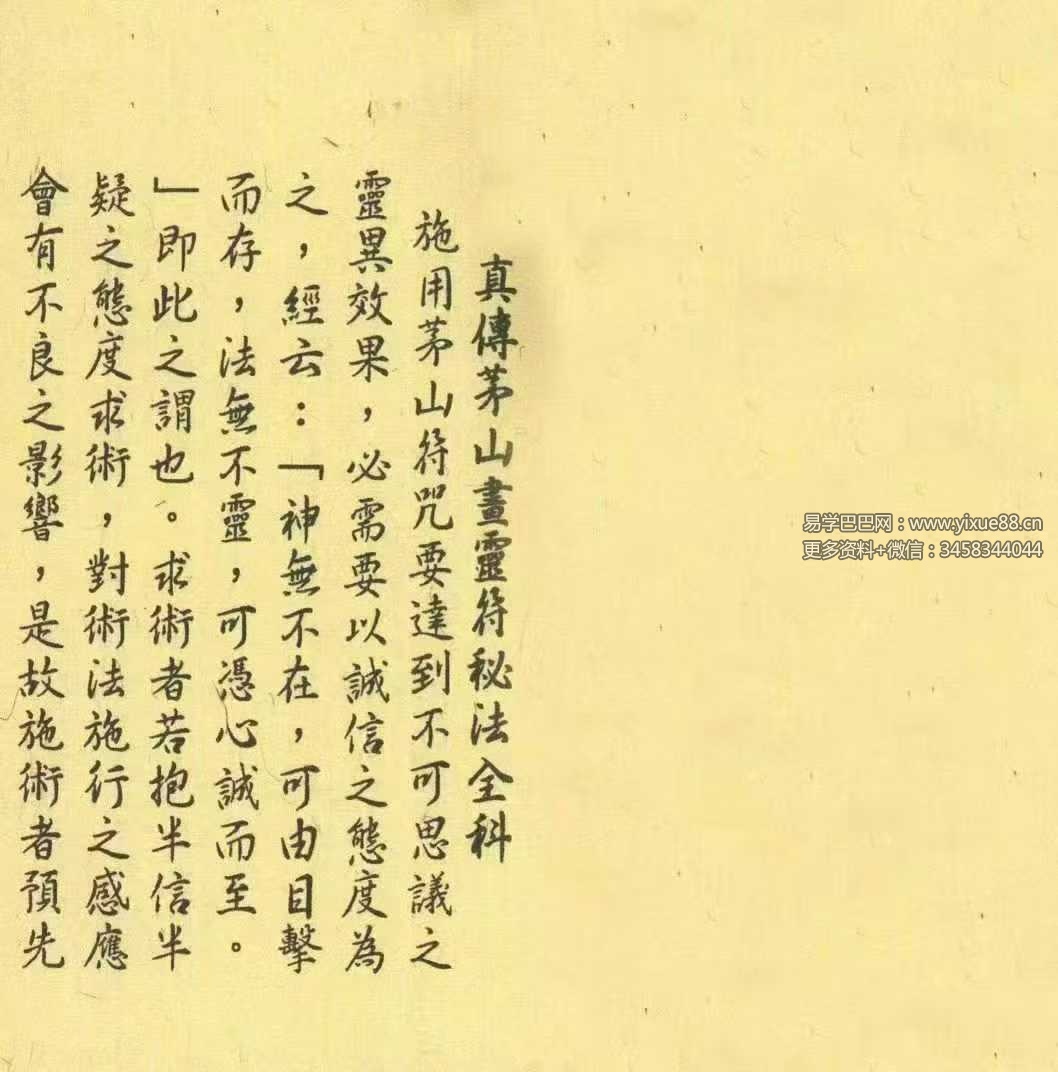 真傳茅山畫靈符秘法全科
施用茅山符咒要達到不可思議之
靈異效果，必需要以誠信之態度為
之，經云：「神無不在，可由目擊
而存，法無不靈，可憑心誠而至。
」即此之謂也。求術者若抱半信半
疑之態度求術，對術法施行之感應
會有不良之影響，是故施術者預先
易学巴巴网：www.yixue88.cn
更多资料+微信：3458344044